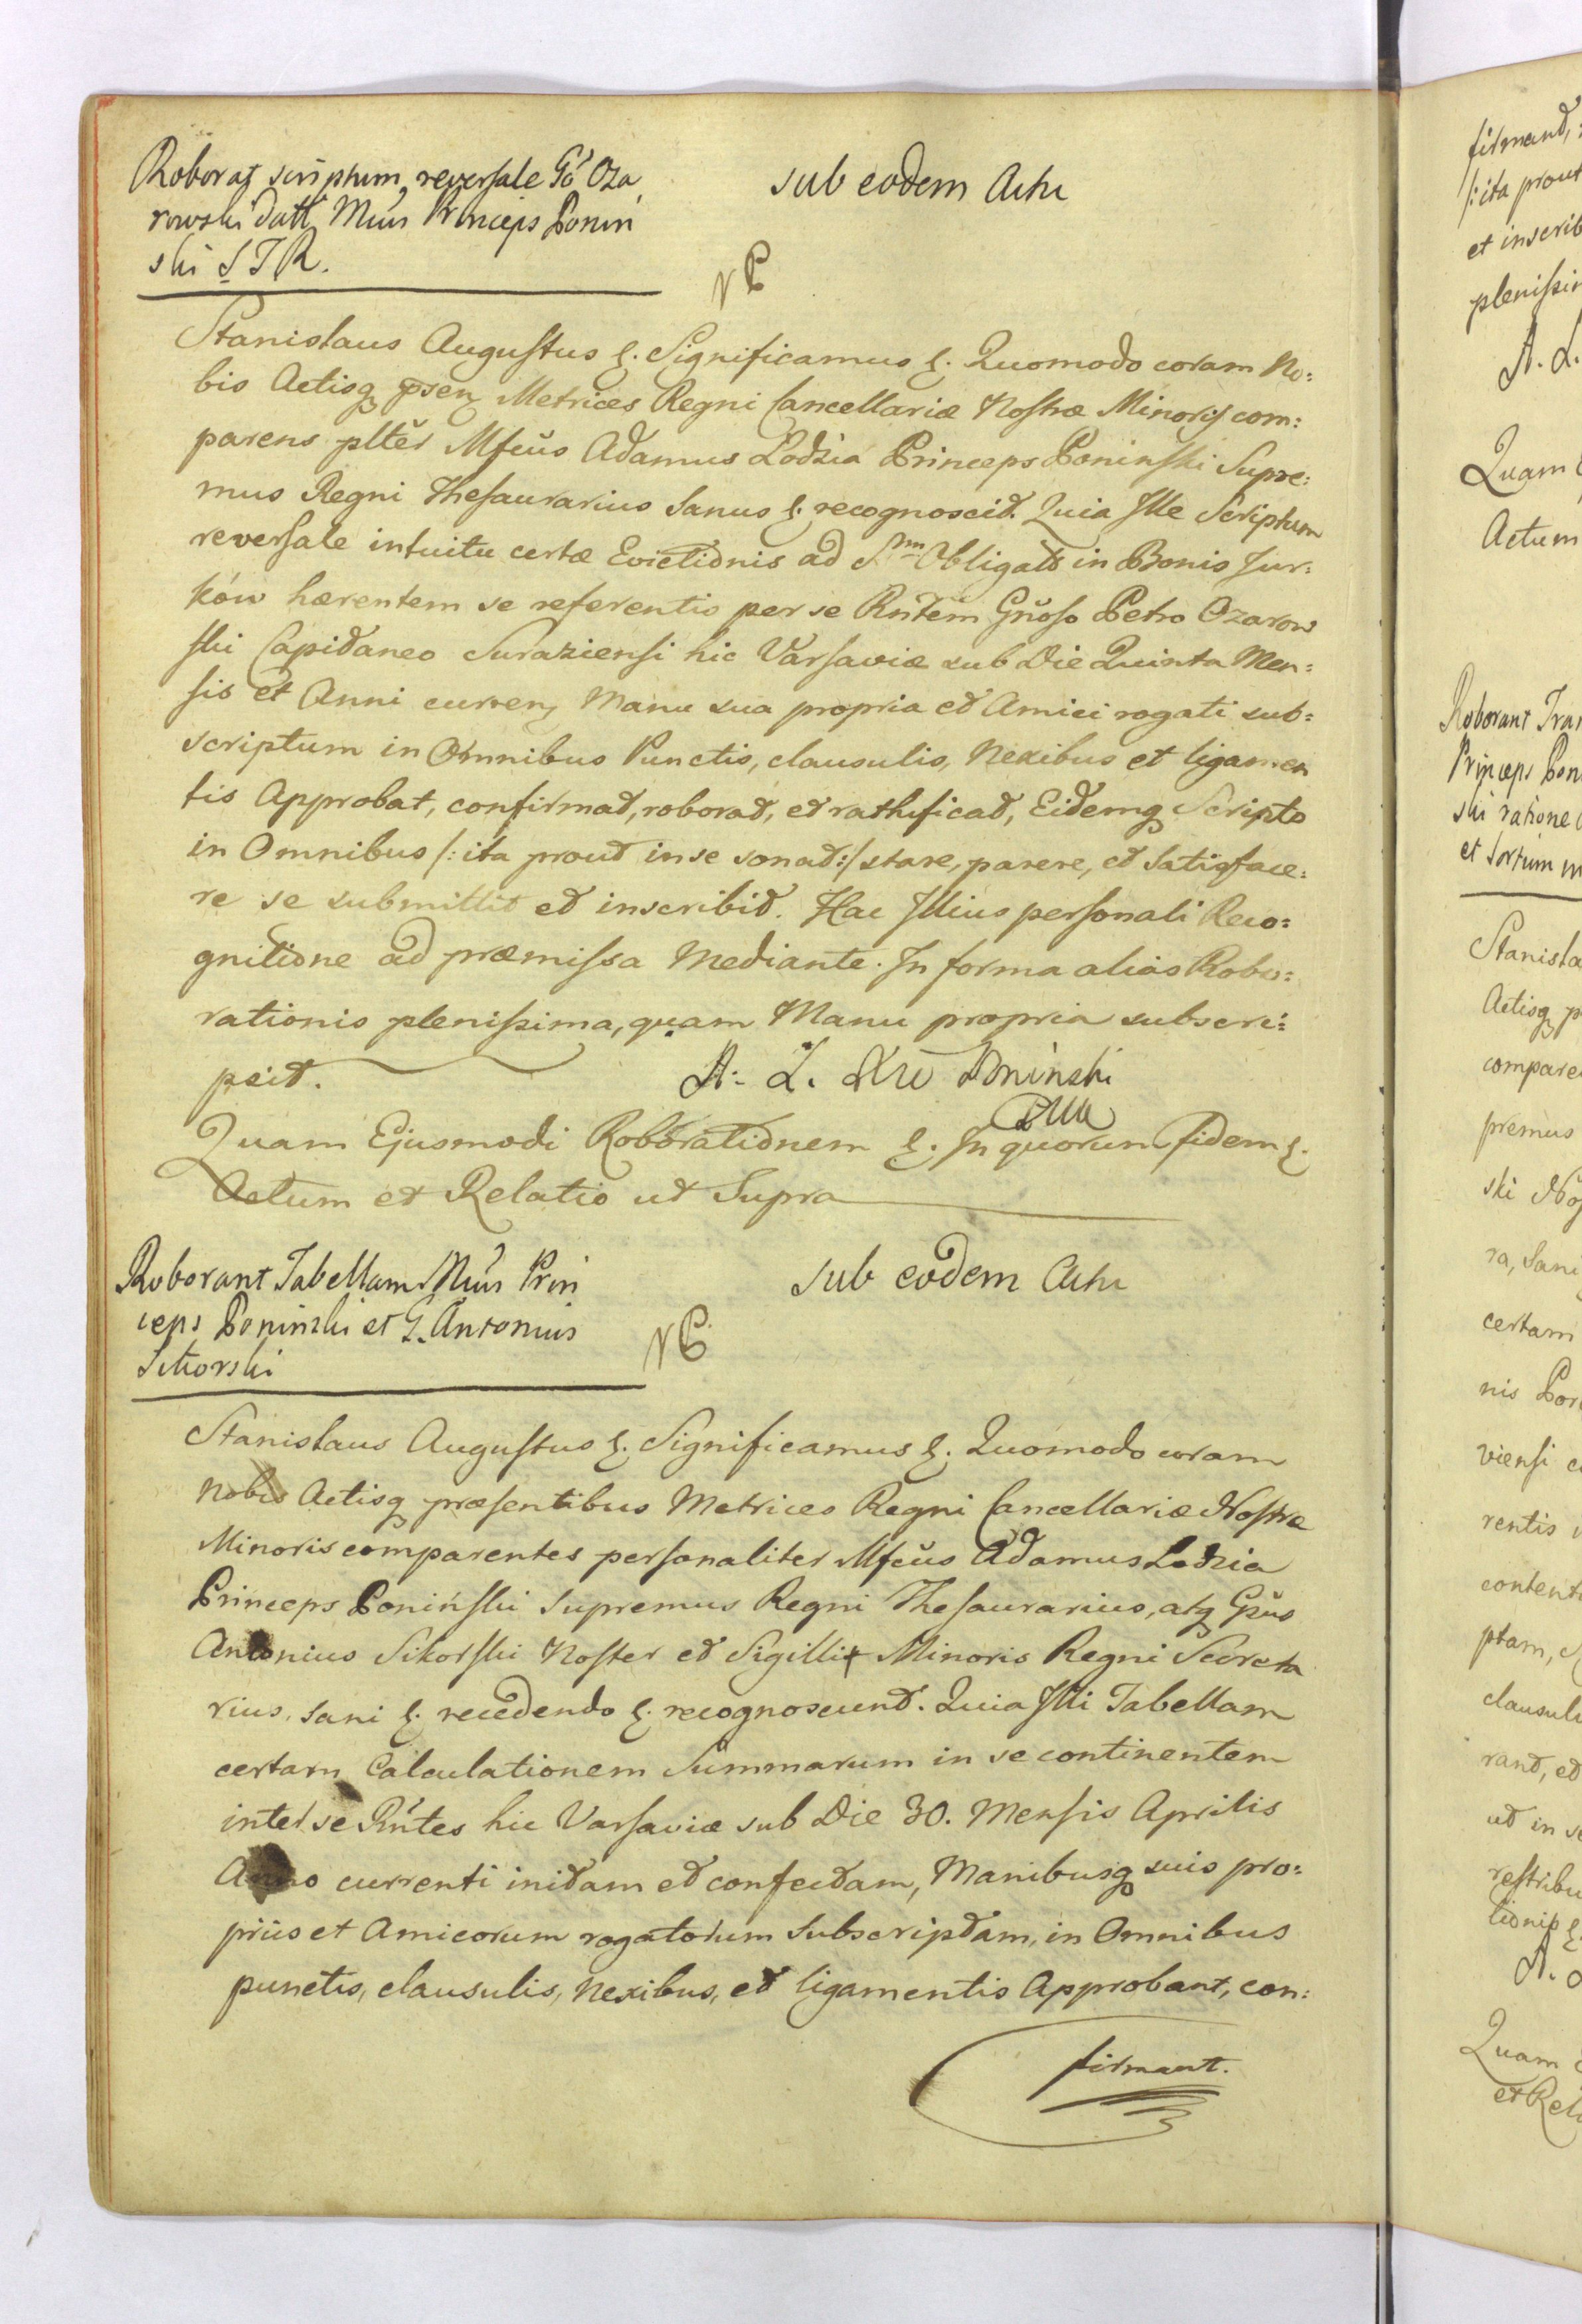 Roborat scriptum reversale Gō Oża
rowski datt Mūus Princeps Poniń
ski STR.
sub eodem Actu
Stanislaus Augustus &. Significamus &. Quomodo coram No:
bis Actisq psen Metrices Regni Cancellariæ Nostræ Minoris com:
parens plter Mfcus Adamus Lodzia Princeps Poninski Supre:
mus Regni Thesaurarius Sanus &. recognoscit. Quia Ille Scriptum
reversale intuitu certæ Evictionis ad Smm Obligatt in Bonis Jur:
ków hærentem se referentis per se Rntem Gnoso Petro Ozarow
ski Capitaneo Suraziensi hic Varsaviæ sub Die Quinta Men:
sis et Anni curren Manu sua propria et Amici rogati sub:
scriptum in Omnibus Punctis, clausulis, Nexibus et ligamen
tis Approbat, confirmat, roborat, et rathificat, Eidemq Scripto
in Omnibus /: ita prout in se sonat :/ stare, parere, et Satisface:
re se submittit et inscribit. Hac Illius personali Reco:
gnitione ad præmissa Mediante. In forma alias Robo:
rationis plenissima, quam Manu propria subscri:
psit.
A. L. Xże Poniński
Quam Ejusmodi Roborationem &. In quorum fidem &.
Actum et Relatio ut Supra
Roborant Tabellam Mūus Prin
ceps Poninski et G. Antonius
Sikorski
sub eodem Actu
Stanislaus Augustus &. Significamus &. Quomodo coram
Nobis Actisq præsentibus Metrices Regni Cancellariæ Nostræ
Minoris comparentes personaliter Mfcus Adamus Lodzia
Princeps Poniński Supremus Regni Thesaurarius, atq Gnus
Antonius Sikorski Noster et Sigilli Minoris Regni Secreta
rius, Sani &. recedendo &. recognoscunt. Quia Illi Tabellam
certam Calculationem Summarum in se continentem
inter se Rntes hic Varsaviæ sub Die 30. Mensis Aprilis
Anno currenti initam et confectam, Manibusq suis pro:
priis et Amicorum rogatorum Subscriptam, in Omnibus
punctis, clausulis, Nexibus, et ligamentis Approbant, con:
firmant.
firmant,
/: ita prout
et inscrib
plenissim
A. L.
Quam
Actum
Roborant Tran
Princeps Pon
ski ratione
et Sortum
Stanisla
Actisq p
compare
premus
ski
ra, Sani
certam
nis
viensi
rentis
content
ptam,
clausuli
rant, et
ut in se
restribu
tionis &
A.
Quam
et Rela